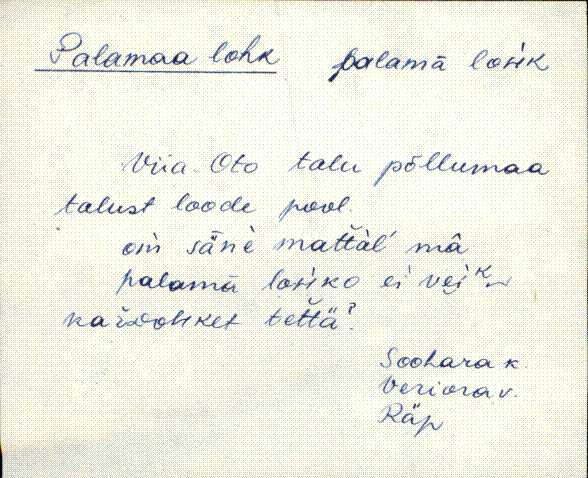 Palamaa lohk palamā lohk
Viia-Oto talu põllumaa
talust loode pool.
oĺń säńè mattàl' mâ
palamā lohko ei vej
kardohket tettä?
Soohara k.
Veriora v.
Räp